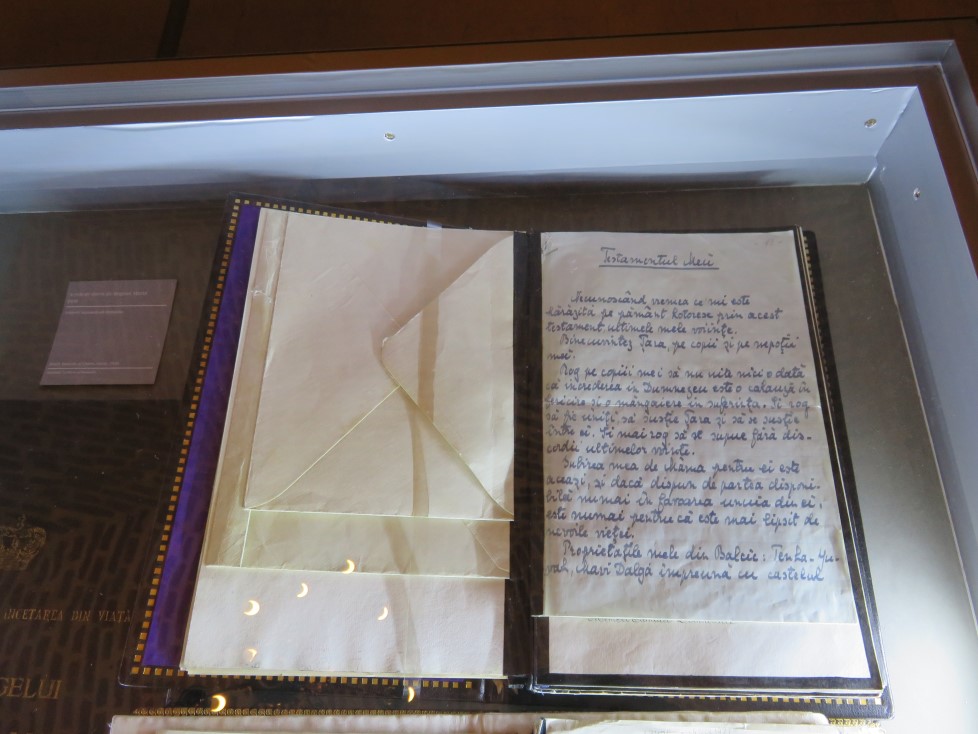 Testamentul Meu
Necunoscând vremea ce mi este
hărăzită pe pământ hotoresc prin acest
testament ultimele mele voințe.
Binecuvintez Țara, pe copii și pe nepoții
mei.
Rog pe copiii mei să nu uite nici o dată
că increderea in Dumnezeu este o calauză în
fericire și o mângaiere in suferința. Ii rog
să fie uniți, să susție Țara și să se susție
între ei. Ii mai rog să se supue fără dis-
cordii ultimelor voințe.
Iubirea mea de Mama pentru ei este
aceeași, și dacă dispun de partea disponi-
bilă numai în favoarea unuia din ei,
este numai pentru că este mai lipsit de
nevoile vieței.
Proprietațile mele din Balcic: Tenka-Yu-
vah, Mavi Dalgá impreună cu castelul
INCETAREA DIN VIATĂ
GELUI